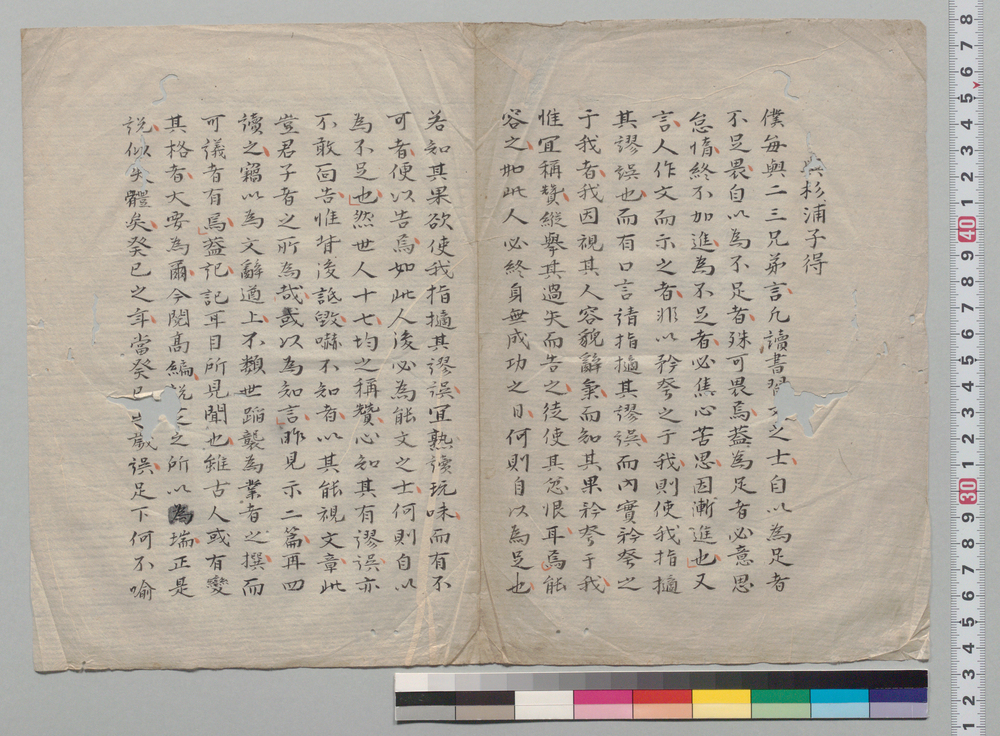 與杉浦子得
僕每與二三兄弟言凡讀書習文之士自以為足者
不足畏自以為不足者殊可畏焉蓋為足者必意思
怠惰終不加進為不足者必焦心苦思因漸進也又
言人作文而示之者非以矜夸之于我則使我指擿
其謬誤也而有口言請指擿其謬誤而內實矜夸之
于我者我因視其人容貌辭氣而知其果矜夸于我
惟宜稱贊縱擧其過失而告之徒使其怨恨耳焉能
容之如此人必終身無成功之日何則自以為足也
若知其果欲使我指擿其謬誤宜熟讀玩味而有不
可者便以告焉如此人後必為能文之士何則自以
為不足也然世人十七均之稱贊心知其有謬誤亦
不敢面告惟背後詆毀嚇不知者以其能視文章此
豈君子者之所為哉或以為知言昨見示二篇再四
讀之竊以為文辭遒上不類世蹈襲為業者之撰而
可議者有焉蓋記記耳目所見聞也雖古人或有變
其格者大要為爾今閱高編說之所以為瑞正是
說似失體矣癸巳之年當癸巳之歲誤足下何不喻